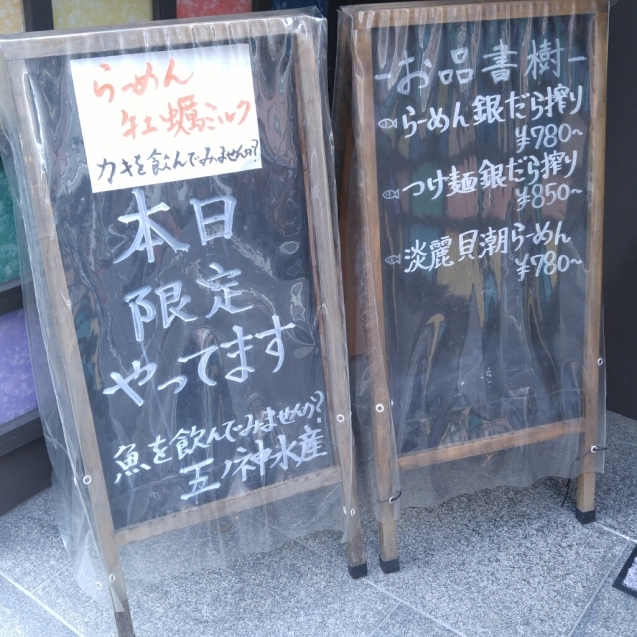 らーめん
牡蠣ミルク
カキを飲んでみませんか?
本日
限定
やってます
魚を飲んでみませんか?
五ノ神水産
-お品書樹-
らーめん銀だら搾り
¥780~
つけ麺銀だら搾り
¥850~
淡麗貝潮らーめん
¥780~